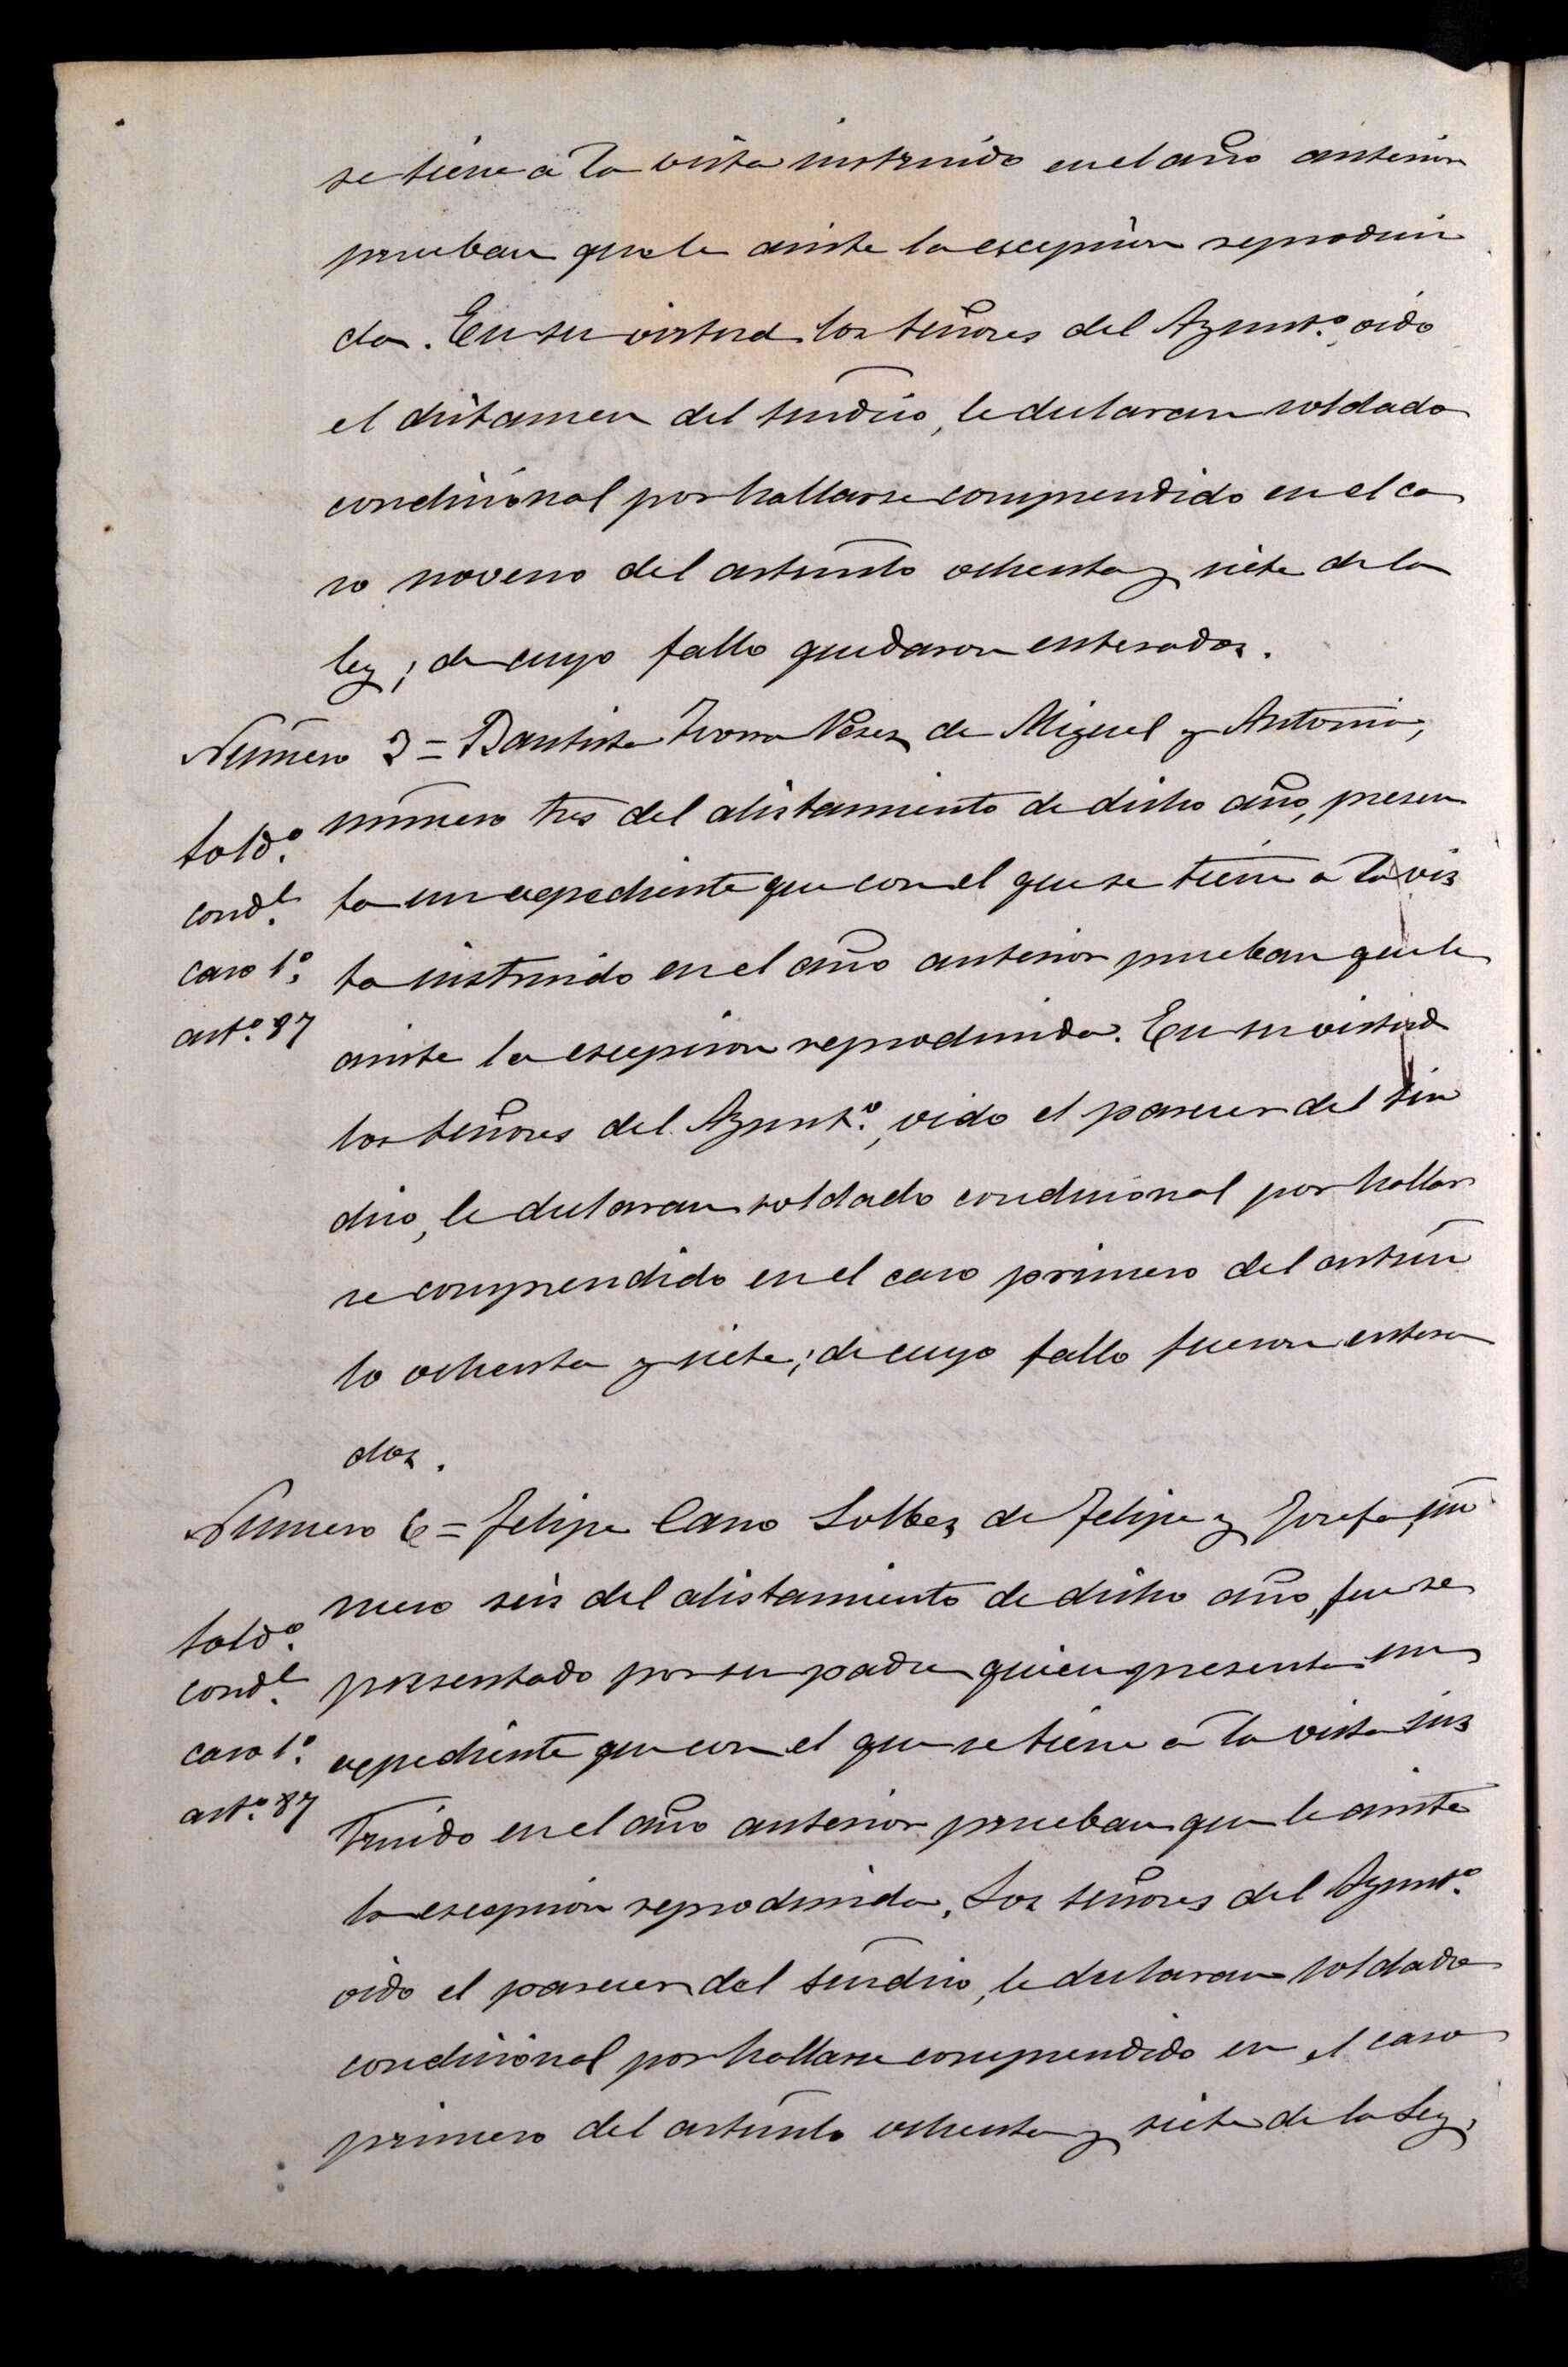 se tiene a la vista instruido en el año anterior
prueban que le asiste la escepcion reproduci
da. En su virtud los señores del Ayunt.º oido
el dictamen del sindico, le declaran soldado
condicional por hallarse comprendido en el ca
so noveno del articulo ochenta y siete de la
ley; de cuyo fallo quedaron enterados.
Número 3 = Bautista Ivorra Perez de Miguel y Antonia,
número tres del alistamiento de dicho año, presen
Sold.º
ta un espediente que con el que se tiene a la vis
cond.l
ta instruido en el año anterior prueban que le
caso 1º.
asiste la escepcion reproducida. En su virtud
art.º 87
los señores del Ayunt.º, oido el parecer del sin
dico, le declaran soldado condicional por hallar
se comprendido en el caso primero del articu
lo ochenta y siete; de cuyo fallo fueron entera
dos.
Numero 6 = Felipe Cano Solbes de Felipe y Josefa, nu
mero seis del alistamiento de dicho año, fue re
Sold.º
presentado por su padre quien presenta un
cond.l
espediente que con el que se tiene a la vista ins
caso 1º.
truido en el año anterior prueban que le asiste
art.º 87
la escepcion reproducida. Los señores del Ayunt.º
oido el parecer del sindico, le declaran soldado
condicional por hallarse comprendido en el caso
primero del articulo ochenta y siete de la Ley,